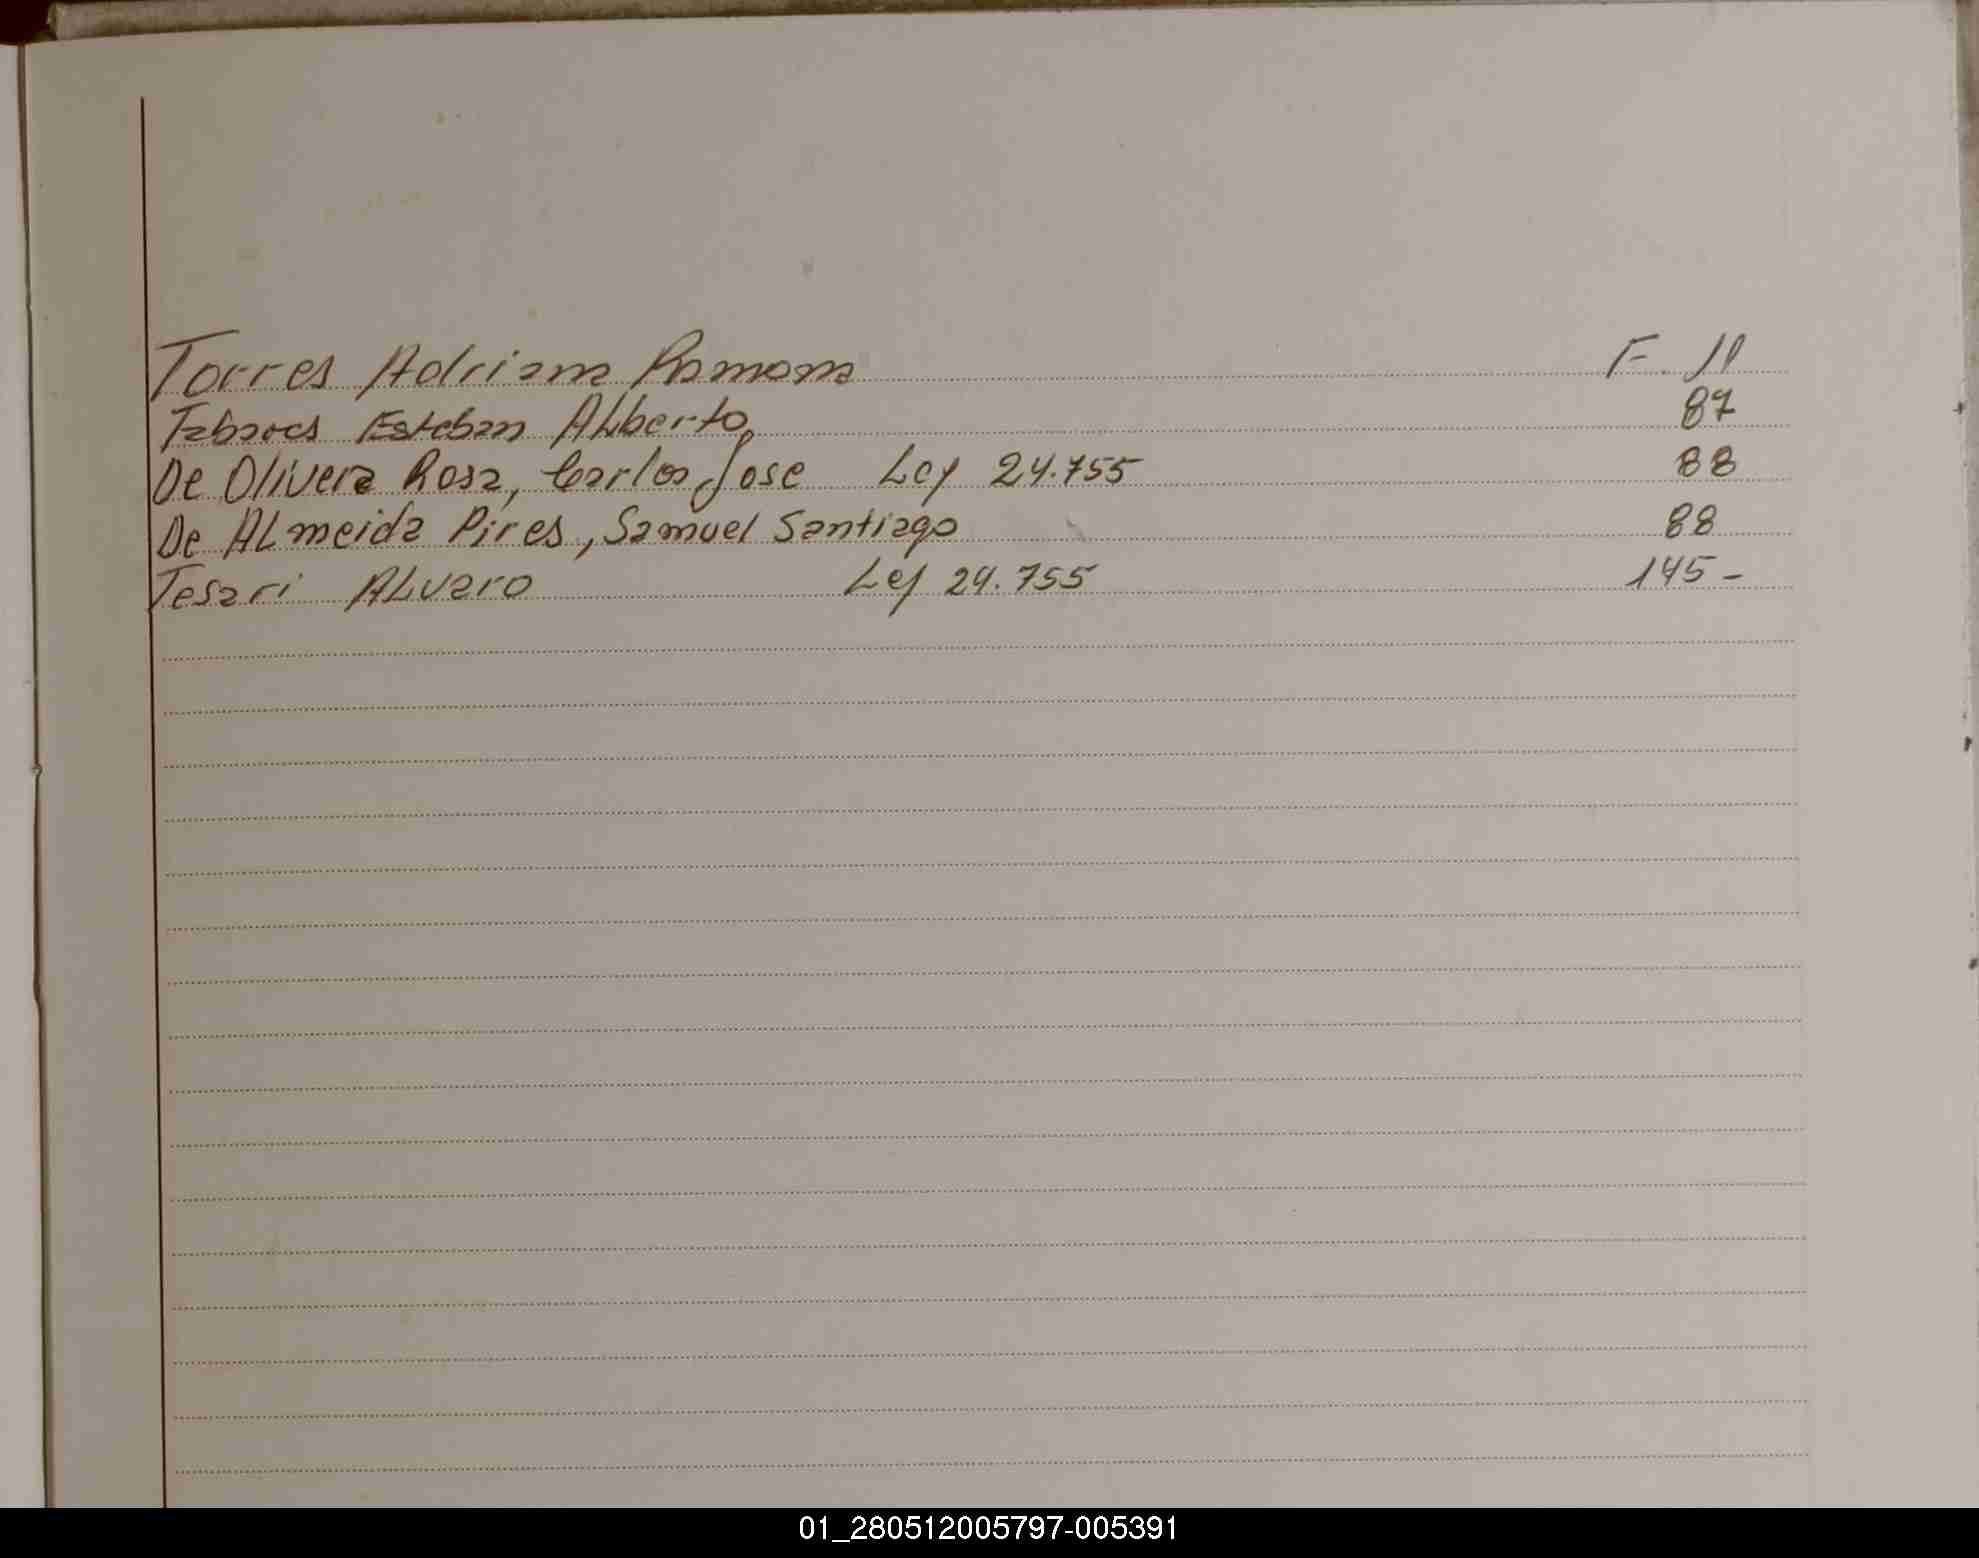 Torres Adriana Ramona F. 11
Tabaocs Esteban Alberto 87
De Olivera Rosa, Carlos Jose Ley 24.755 88
De Almeida Pires, Samuel Santiago 88
Tesari Alvaro Ley 24.755 145-
01_280512005797-005391